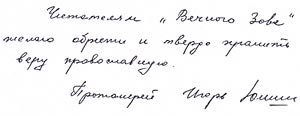 Читателям „Вечного Зова“
желаю обрести и твердо хранить
веру православную.
Протоиерей Игорь